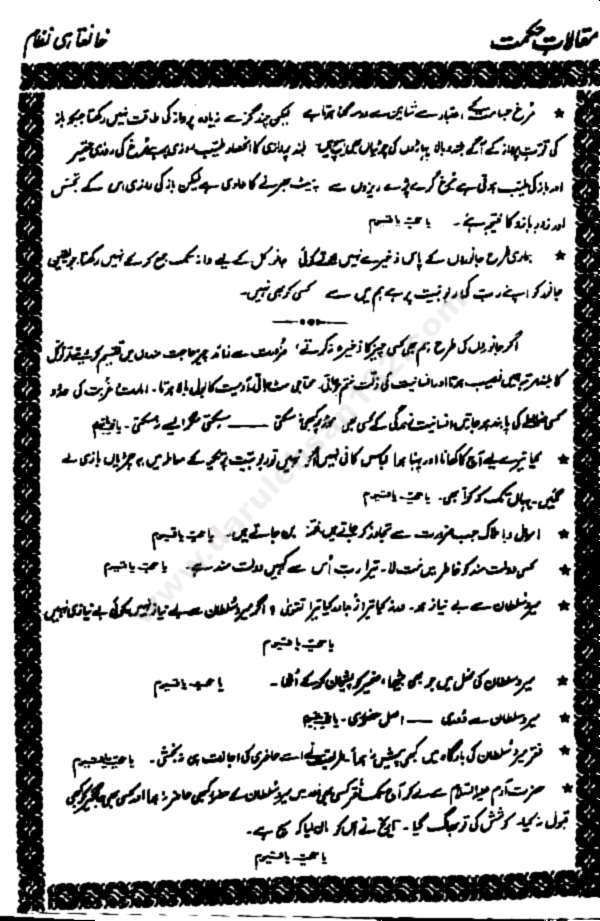 مقالاتِ حکمت
خانقاہی نظام
★ مُرغ جسامت کے اعتبار سے شاہین سے دوسرا گنا ہوتا ہے لیکن چند گز سے زیادہ پرواز کی طاقت نہیں رکھتا جبکہ باز
کی قوتِ پرواز کے آگے بلند و بالا پہاڑوں کی چوٹیاں بھی ہیچ ہیں۔ بلند پروازی کا انحصار طیب روزی پر ہے مُرغ کی روزی حقیر
اور باز کی طیب ہوتی ہے مُرغ گرے پڑے ریزوں سے پیٹ بھرنے کا عادی ہے لیکن باز کی روزی اس کے تجسس
اور زورِ بازو کا نتیجہ ہے۔ یا حیّ یا قیّوم
★ ہماری طرح جانوروں کے پاس ذخیرے نہیں ہوتے کوئی جانور کل کے لیے دانہ تک جمع کر کے نہیں رکھتا۔ جو یقین
جانور کو اپنے رب کی ربوبیت پر ہے ہم میں سے کسی کو بھی نہیں۔
اگر جانوروں کی طرح ہم بھی کسی چیز کا ذخیرہ نہ کرتے، ضرورت سے زائد چیز حاجت مندوں میں تقسیم کر دیتے تو توکل
کا بلند مرتبہ ہمیں نصیب ہوتا اور انسانیت کی ذلت ختم ہو جاتی۔ محتاجی مٹ جاتی آدمیت کا بول بالا ہوتا۔ امارت و غربت کی حدود
کسی ضابطے کی پابند ہو جاتیں انسانیت زندگی کے کسی بھی موڑ پر کبھی نہ سسکتی — سسکتی مگر ایسے نہ سسکتی۔ یا حیّ یا قیّوم
★ کیا تیرے لیے آج کا کھانا اور پہنا ہوا لباس کافی نہیں اگر نہیں تو ربوبیت پر تکیہ کے معاملہ میں یہ چڑیاں بازی لے
گئیں۔ یہاں تک کہ کوّا بھی۔ یا حیّ یا قیّوم
★ اموال و املاک جب ضرورت سے تجاوز کر جاتے ہیں فتنہ بن جاتے ہیں۔ یا حیّ یا قیّوم
★ کسی دولت مند کو خاطر میں مت لا۔ تیرا رب اُس سے کہیں دولت مند ہے۔ یا حیّ یا قیّوم
★ میر و سُلطان سے بے نیاز ہو۔ ورنہ کیا تیرا زُہد اور کیا تیرا تقویٰ؟ اگر میر و سُلطان سے بے نیاز نہیں، کوئی بے نیازی نہیں
یا حیّ یا قیّوم
★ میر و سلطان کی محفل میں جو بھی بیٹھا، ضمیر کو پشیمان کر کے اُٹھا۔ یا حیّ یا قیّوم
★ میر و سلطان سے دُوری — اصل حضوری۔ یا حیّ یا قیّوم
★ فقر میر و سُلطان کی بارگاہ میں کبھی پیش نہ ہوا۔ طریقت نے اسے حاضری کی اجازت ہی نہ بخشی۔ یا حیّ یا قیّوم
★ حضرت آدم علیہ السلام سے لے کر آج تک فقر کسی بھی دور میں میر و سُلطان کے حضور کبھی حاضر نہ ہوا اور کسی بھی جاگیر کو کبھی
قبول نہ کیا۔ کوشش کی تو بھاگ گیا۔ تاریخ نے اس کو مان لیا کہ سچ ہے۔
یا حیّ یا قیّوم